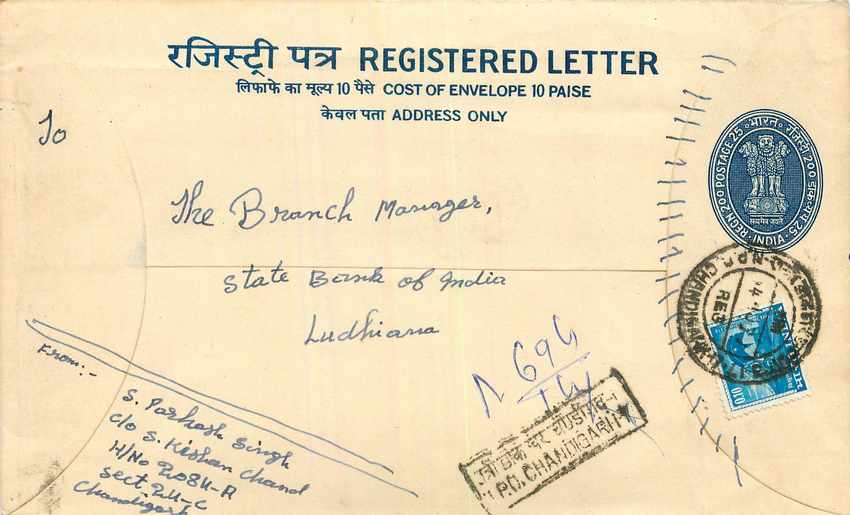 रजिस्ट्री पत्र REGISTERED LETTER
लिफाफे का मूल्य 10 पैसे COST OF ENVELOPE 10 PAISE
केवल पता ADDRESS ONLY
REGN 200 POSTAGE 25 भारत रजिस्ट्री 200 डाक-व्यय 25
सत्यमेव जयते
INDIA
To
The Branch Manager,
State Bank of India
Ludhiana
From:-
S. Parkash Singh
C/o S. Kishan Chand
H/No 2084-A
Sect 24-C
Chandigarh
N 694
CHANDIGARH
REG
0.10
P.O. CHANDIGARH-1